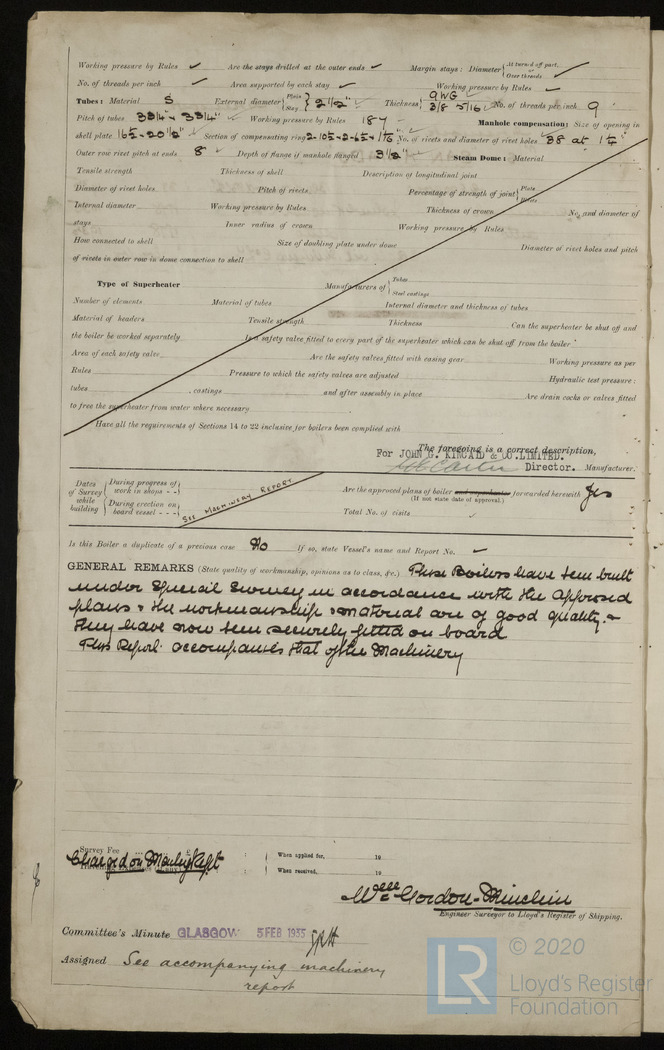 Working pressure by Rules ✓ Are the stays drilled at the outer ends ✓ Margin stays: Diameter { At turned off part, or Over threads ✓
No. of threads per inch ✓ Area supported by each stay ✓ Working pressure by Rules ✓
Tubes: Material S External diameter { Plain Stay } 2 1/2" ✓ Thickness { 9 WG 3/8 5/16 ✓ No. of threads per inch 9
Pitch of tubes 3 3/4" x 3 3/4" ✓ Working pressure by Rules 187 ✓ Manhole compensation: Size of opening in
shell plate Section of compensating ring No. of rivets and diameter of rivet holes 38 at 1 1/4
Outer row rivet pitch at ends 8" ✓ Depth of flange if manhole flanged 3 1/2" ✓ Steam Dome: Material
Tensile strength Thickness of shell Description of longitudinal joint
Diameter of rivet holes Pitch of rivets Percentage of strength of joint { Plate Rivets
Internal diameter Working pressure by Rules Thickness of crown No. and diameter of
stays Inner radius of crown Working pressure by Rules
How connected to shell Size of doubling plate under dome Diameter of rivet holes and pitch
of rivets in outer row in dome connection to shell
Type of Superheater Manufacturers of { Tubes Steel castings
Number of elements Material of tubes Internal diameter and thickness of tubes
Material of headers Tensile strength Thickness Can the superheater be shut off and
the boiler be worked separately Is a safety valve fitted to every part of the superheater which can be shut off from the boiler
Area of each safety valve Are the safety valves fitted with easing gear Working pressure as per
Rules Pressure to which the safety valves are adjusted Hydraulic test pressure:
tubes , castings and after assembly in place Are drain cocks or valves fitted
to free the superheater from water where necessary
Have all the requirements of Sections 14 to 22 inclusive for boilers been complied with
The foregoing is a correct description,
For JOHN G. KINCAID & CO. LIMITED.
Director. Manufacturer.
Dates of Survey while building { During progress of work in shops - -
During erection on board vessel - - -
SEE MACHINERY REPORT
Are the approved plans of boiler and superheater forwarded herewith Yes
(If not state date of approval.)
Total No. of visits
Is this Boiler a duplicate of a previous case No If so, state Vessel's name and Report No. ✓
GENERAL REMARKS (State quality of workmanship, opinions as to class, &c.) These Boilers have been built
under Special Survey in accordance with the approved
plans & the workmanship & material are of good quality. &
they have now been securely fitted on board
This Report accompanies that of the Machinery
Survey Fee
Charged on Machy Rept
When applied for, 19
When received, 19
Wm Gordon-Minchin
Engineer Surveyor to Lloyd's Register of Shipping.
Committee's Minute GLASGOW 5 FEB 1935
Assigned See accompanying machinery
report
© 2020
LR Lloyd's Register
Foundation